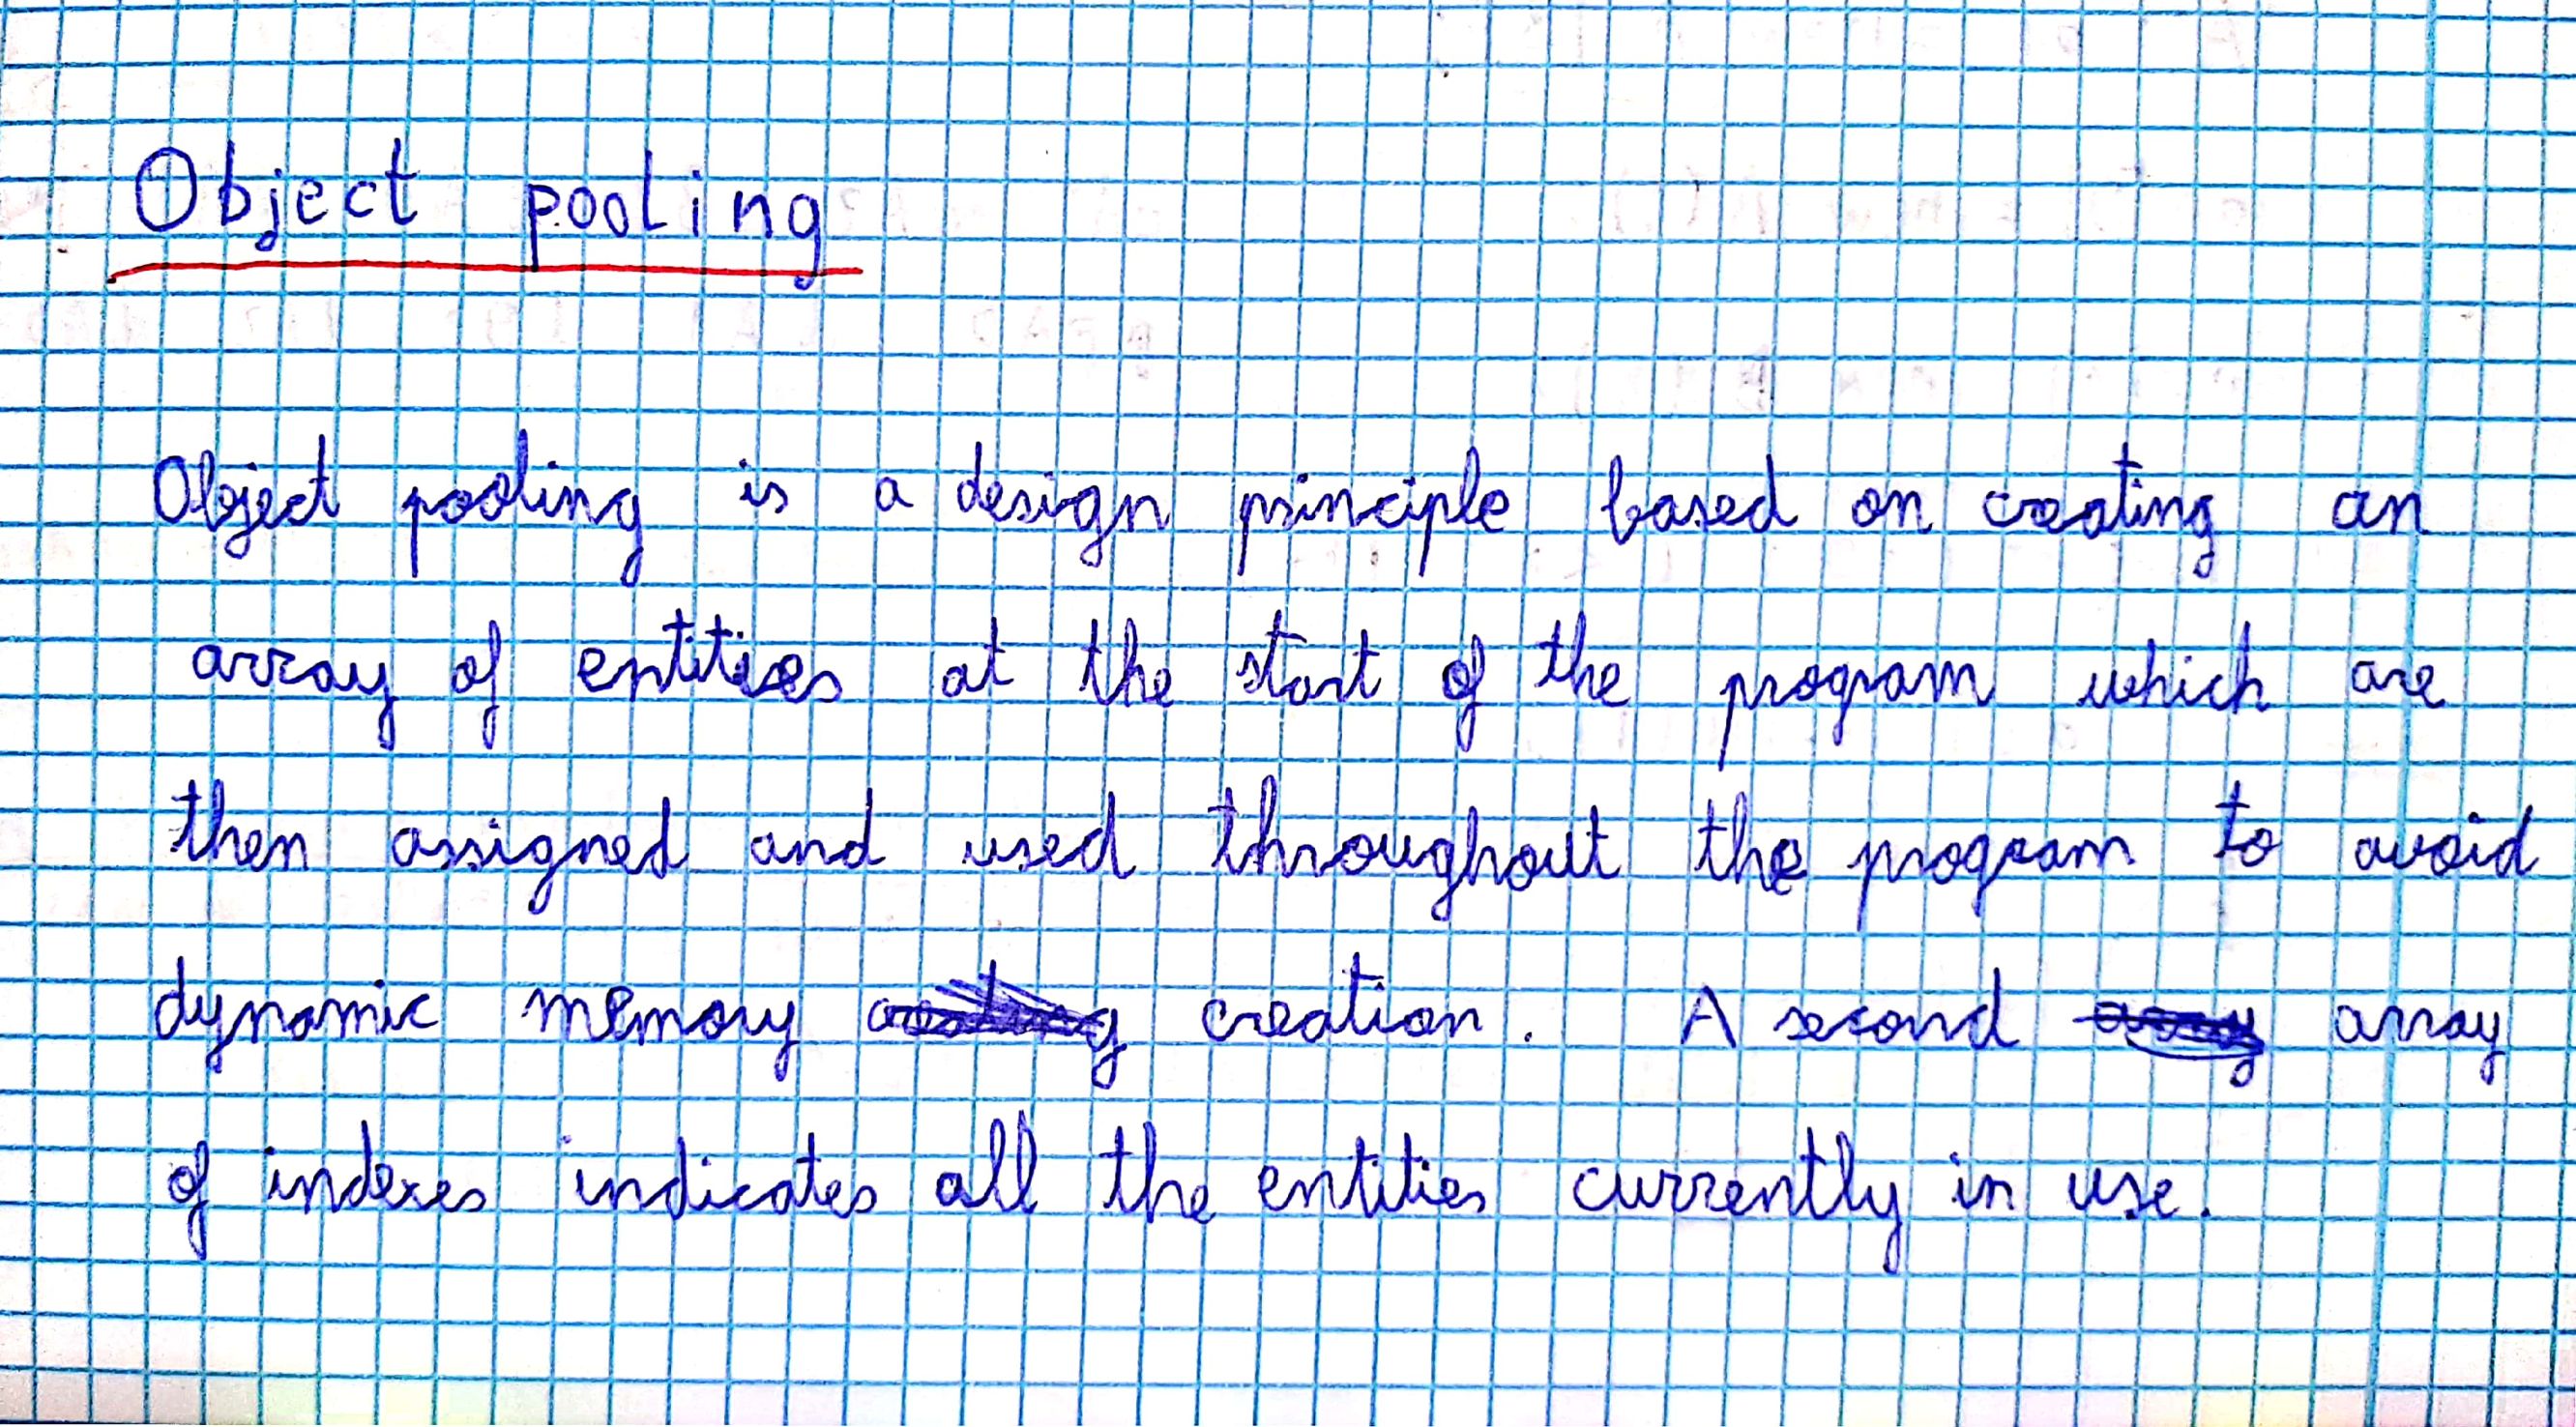 Object pooling
Object pooling is a design principle based on creating an
array of entities at the start of the program which are
then assigned and used throughout the program to avoid
dynamic memory creation. A second array
of indexes indicates all the entities currently in use.